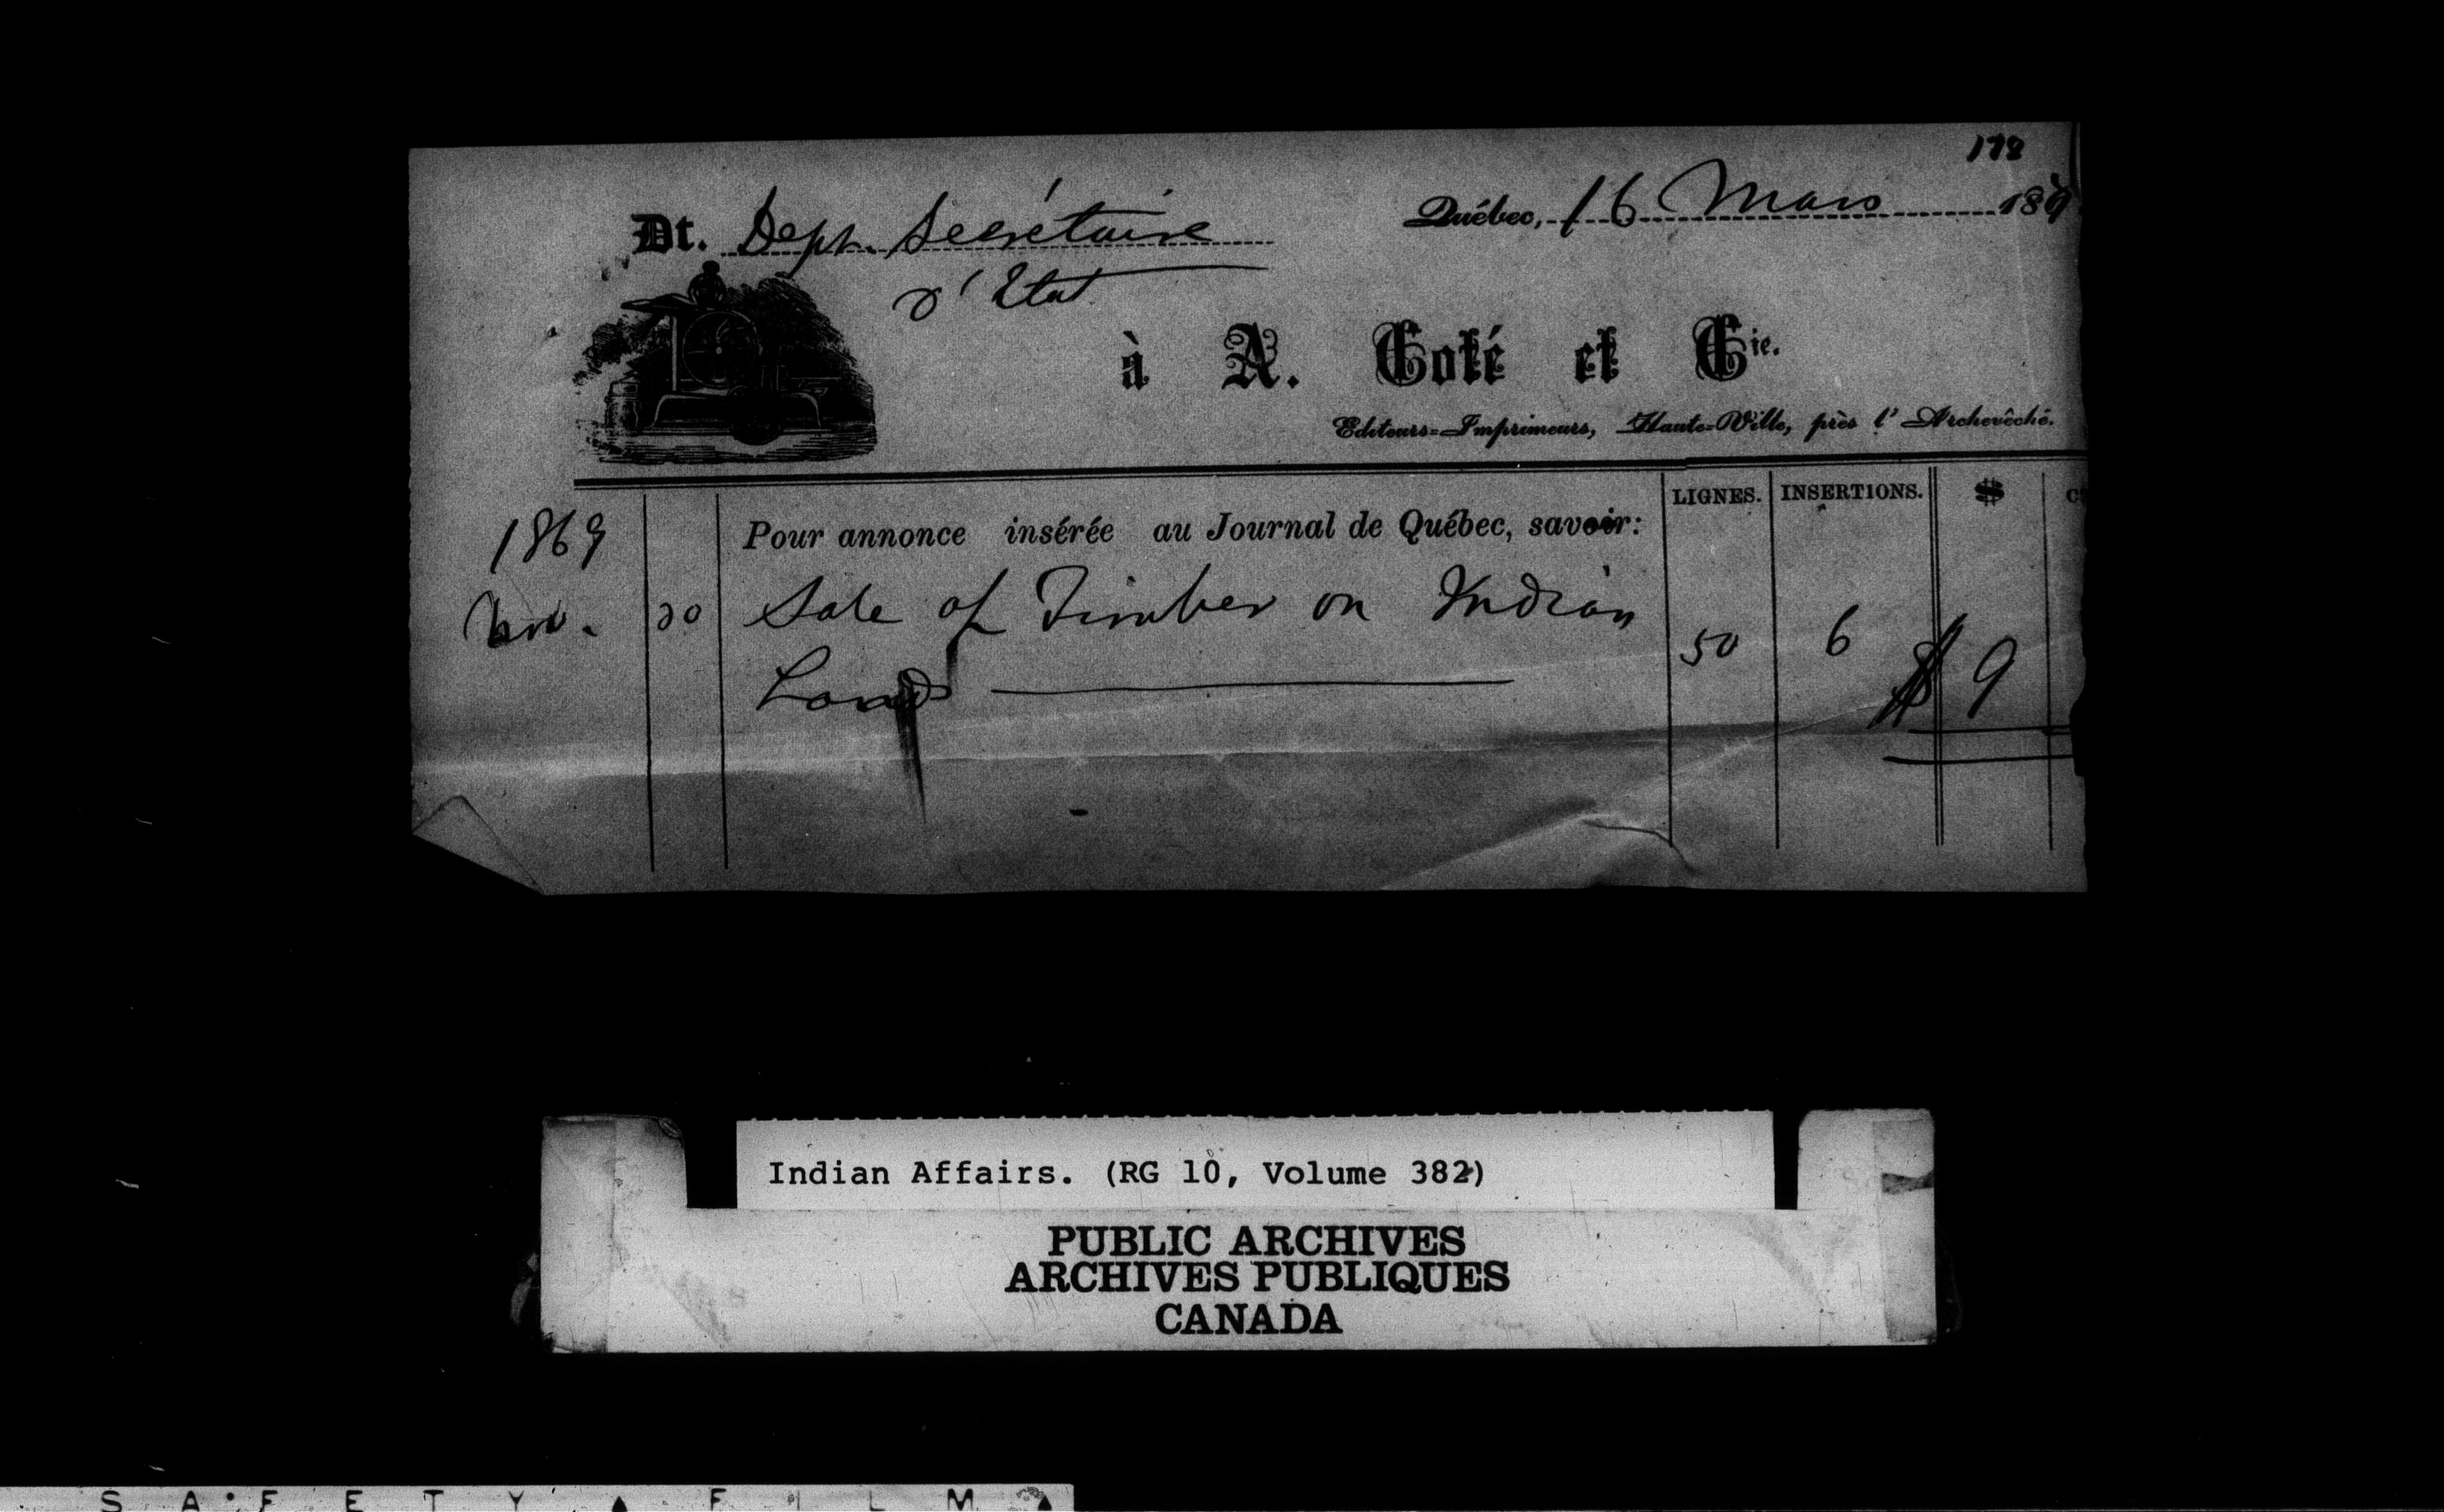 178
Dt. Dept. Secrétaire Québec, 16 Mars 18
d'Etat
à A. Coté et Cie.
Editeurs-Imprimeurs, Haute-Ville, près l'Archevêché.
LIGNES. INSERTIONS. $
1869 Pour annonce insérée au Journal de Québec, savoir:
Nov. 30 Sale of Timber on Indian
Lands 50 6 $ 9
Indian Affairs. (RG 10, Volume 382)
PUBLIC ARCHIVES
ARCHIVES PUBLIQUES
CANADA
SAFETY FILM